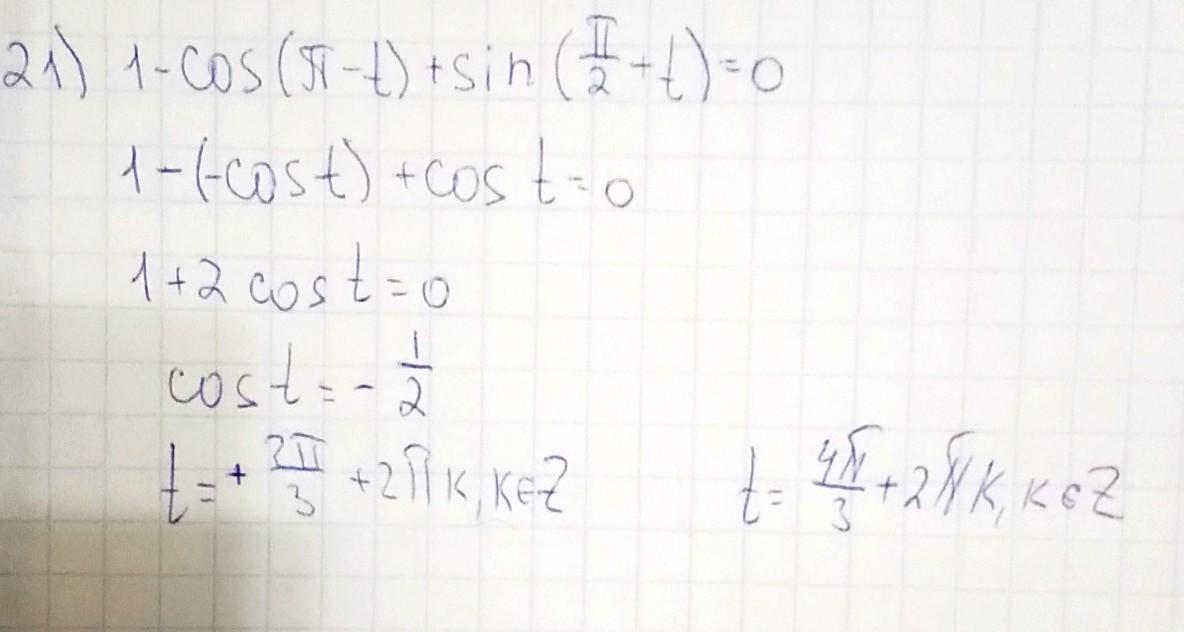 21) 1-cos(π-t)+sin(π/2+t)=0
1-(-cost)+cos t=0
1+2 cost=0
cost=-1/2
t=+2π/3+2πk, k∈Z t=4π/3+2πk, k∈Z